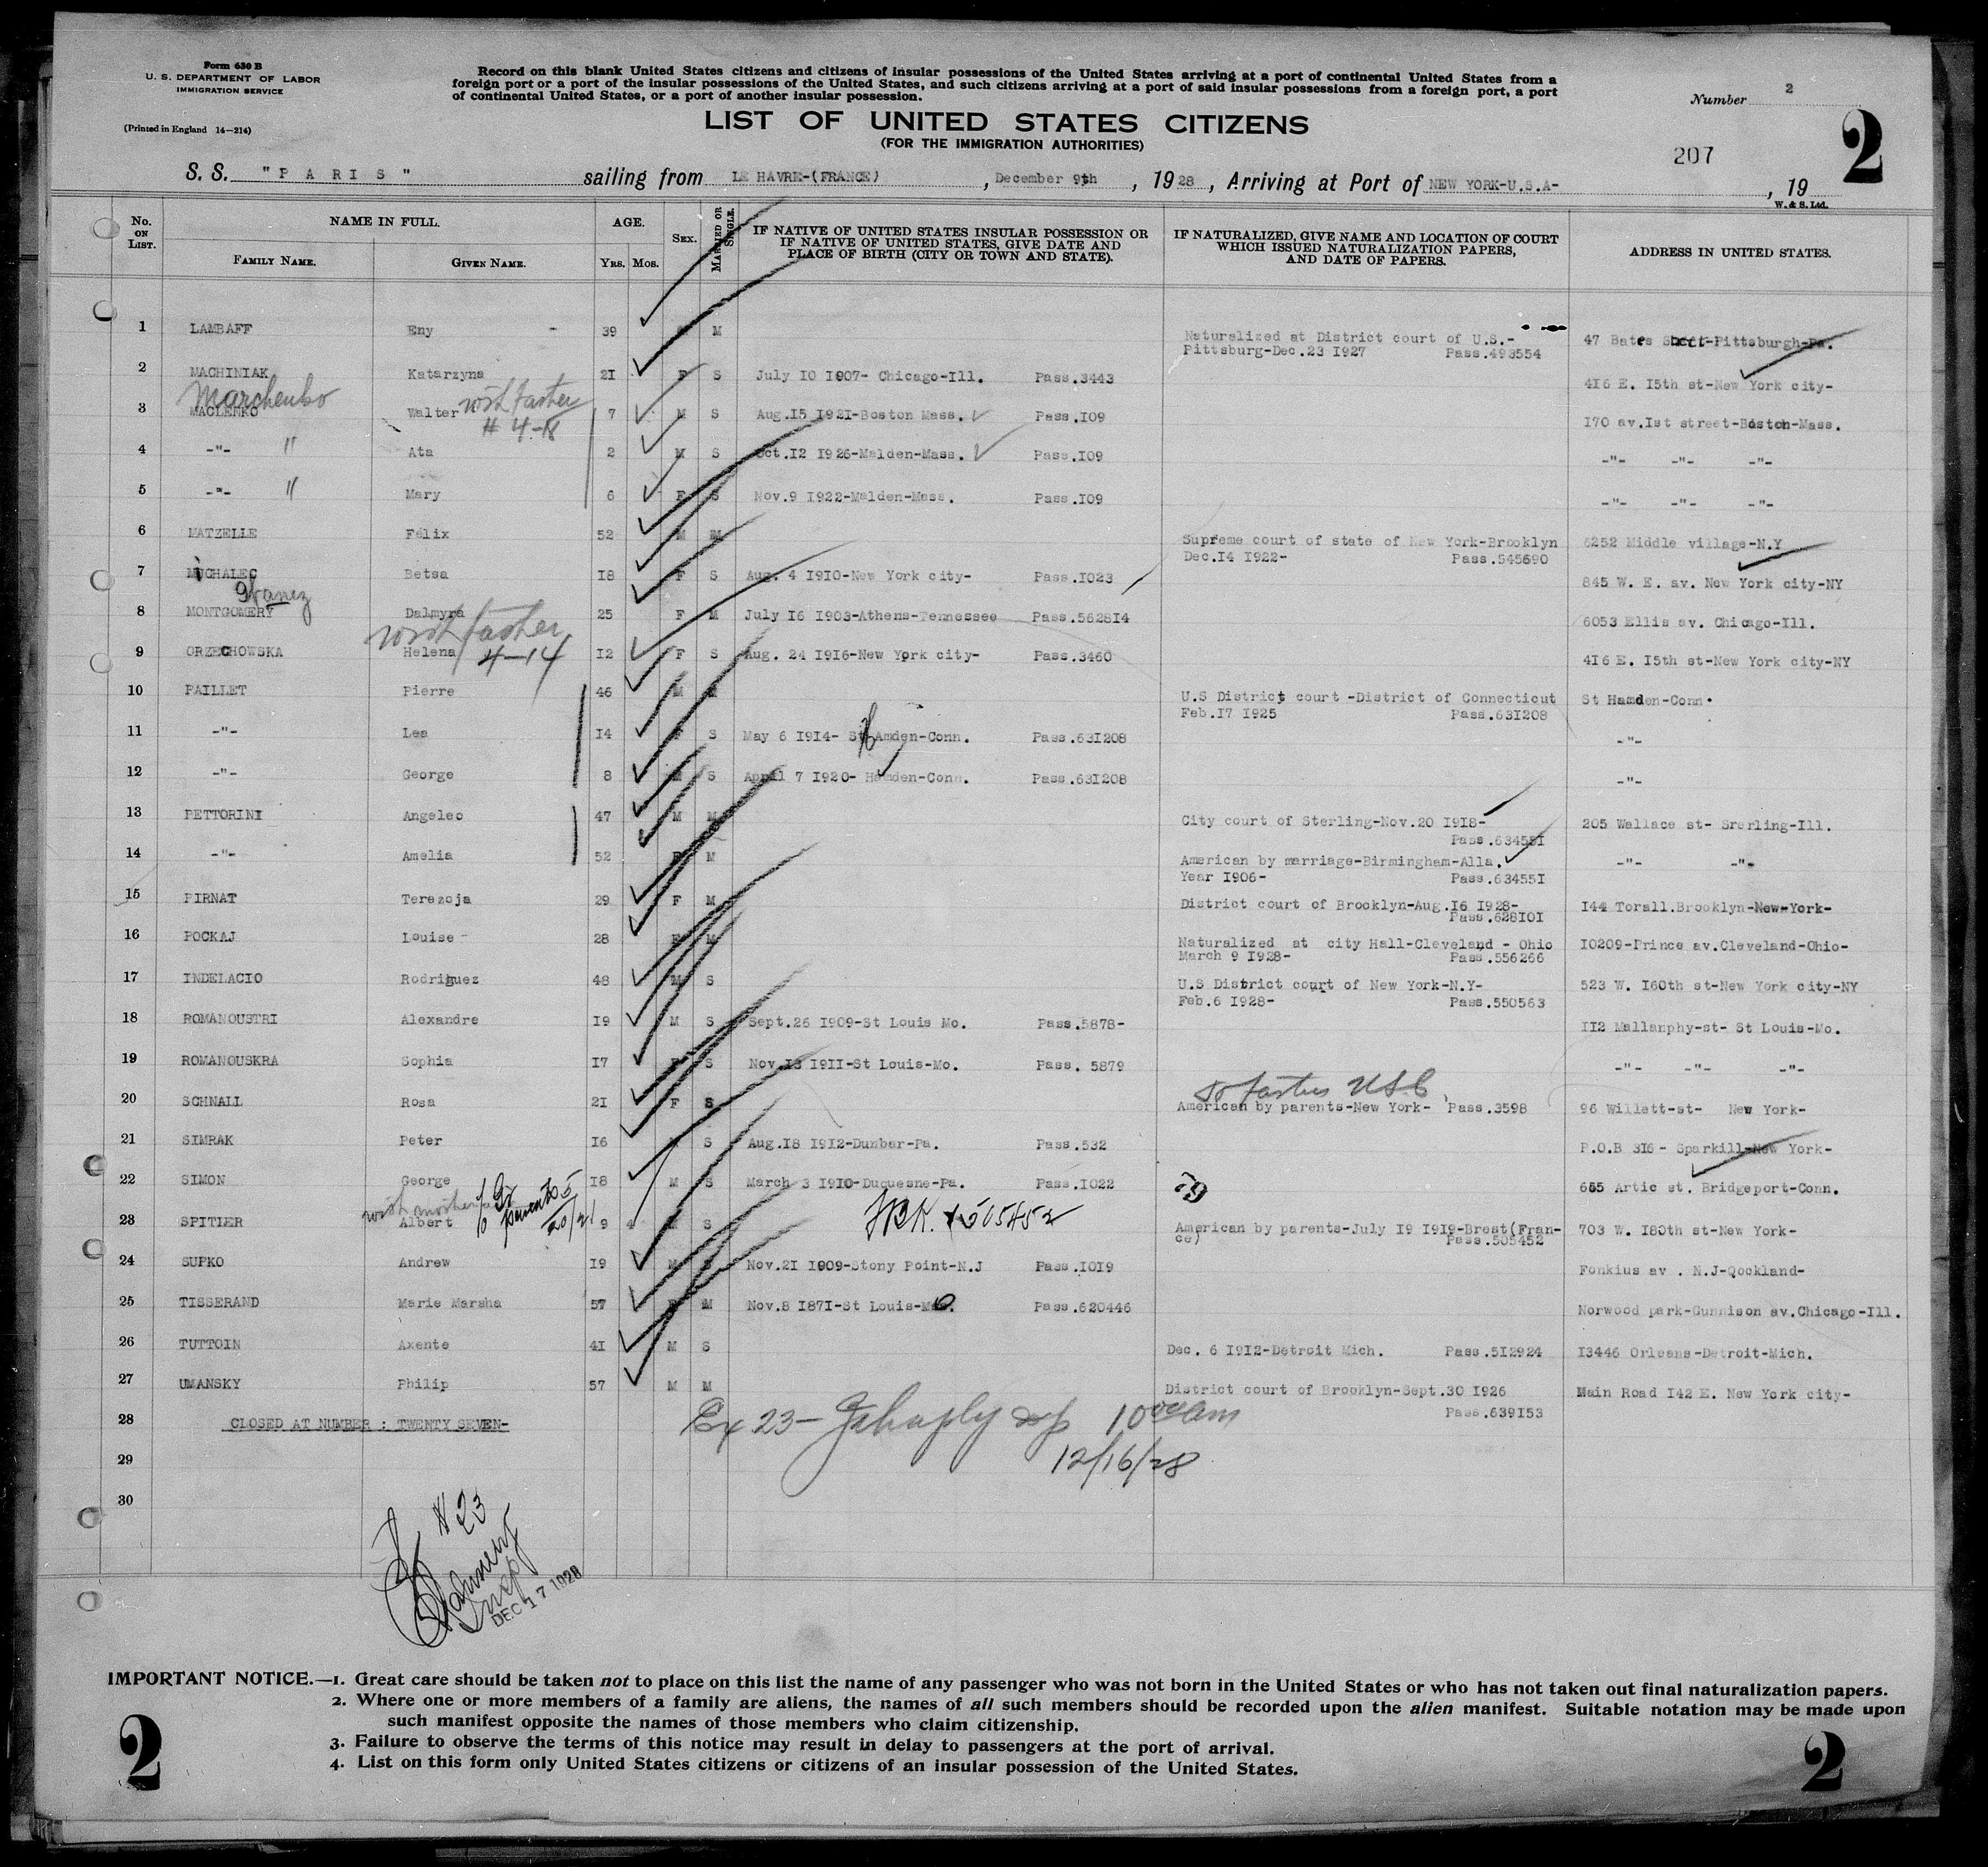 Form 630 B
U. S. DEPARTMENT OF LABOR
IMMIGRATION SERVICE
(Printed in England 14—214)
Record on this blank United States citizens and citizens of insular possessions of the United States arriving at a port of continental United States from a
foreign port or a port of the insular possessions of the United States, and such citizens arriving at a port of said insular possessions from a foreign port, a port
of continental United States, or a port of another insular possession.
Number 2
LIST OF UNITED STATES CITIZENS
(FOR THE IMMIGRATION AUTHORITIES)
207
2
S. S. "PARIS" sailing from LE HAVRE-(FRANCE), December 9th, 1928, Arriving at Port of NEW YORK-U.S.A-, 19
W. & S. Ltd.
No. ON LIST. NAME IN FULL. FAMILY NAME. GIVEN NAME. AGE. YRS. MOS. SEX. MARRIED OR SINGLE. IF NATIVE OF UNITED STATES INSULAR POSSESSION OR IF NATIVE OF UNITED STATES, GIVE DATE AND PLACE OF BIRTH (CITY OR TOWN AND STATE). IF NATURALIZED, GIVE NAME AND LOCATION OF COURT WHICH ISSUED NATURALIZATION PAPERS, AND DATE OF PAPERS. ADDRESS IN UNITED STATES.
1 LAMBAFF Eny - 39 M Naturalized at District court of U.S.- 47 Bates Pittsburgh-Pa.
Pittsburg-Dec.23 1927 Pass.493554
2 MACHINIAK Katarzyna 21 F S July 10 1907- Chicago-Ill. Pass.3443 416 E. 15th st-New York city-
Marchenko
3 MACLENKO Walter with father # 4-18 7 M S Aug.15 1921-Boston Mass. Pass.109 170 av.1st street-Boston-Mass.
4 -"- " Ata 2 M S Oct.12 1926-Malden-Mass. Pass.109 -"- -"- -"-
5 -"- " Mary 6 F S Nov.9 1922-Malden-Mass. Pass.109 -"- -"- -"-
6 MATZELLE Félix 52 M M Supreme court of state of New York-Brooklyn 6252 Middle village-N.Y
Dec.14 1922- Pass.545690
7 MICHALEC Betsa 18 F S Aug. 4 1910-New York city- Pass.1023 845 W. E. av. New York city-NY
8 MONTGOMERY Dalmyra 25 F M July 16 1903-Athens-Tennessee Pass.562814 6053 Ellis av. Chicago-Ill.
with father 4-14
9 ORZECHOWSKA Helena 12 F S Aug. 24 1916-New York city- Pass.3460 416 E. 15th st-New York city-NY
10 PAILLET Pierre 46 M M U.S District court -District of Connecticut St Hamden-Conn.
Feb.17 1925 Pass.631208
11 -"- Lea 14 F S May 6 1914- St Hamden-Conn. Pass.631208 -"-
12 -"- George 8 M S April 7 1920- Hamden-Conn. Pass.631208 -"-
13 PETTORINI Angeleo 47 M M City court of Sterling-Nov.20 1918- 205 Wallace st- Srerling-Ill.
Pass.634551
14 -"- Amelia 52 F M American by marriage-Birmingham-Alla. -"- -"-
Year 1906- Pass.634551
15 PIRNAT Terezoja 29 F M District court of Brooklyn-Aug.16 1928- 144 Torall.Brooklyn-New-York-
Pass.628101
16 POCKAJ Louise 28 F M Naturalized at city Hall-Cleveland - Ohio 10209-Prince av.Cleveland-Ohio-
March 9 1928- Pass.556266
17 INDELACIO Rodriguez 48 M S U.S District court of New York-N.Y- 523 W. 160th st-New York city-NY
Feb.6 1928- Pass.550563
18 ROMANOUSTRI Alexandre 19 M S Sept.26 1909-St Louis Mo. Pass.5878- 112 Mallanphy-st- St Louis-Mo.
19 ROMANOUSKRA Sophia 17 F S Nov.13 1911-St Louis-Mo. Pass. 5879 -"- -"- -"-
to father USC
20 SCHNALL Rosa 21 F S American by parents-New York- Pass.3598 96 Willett-st- New York-
21 SIMRAK Peter 16 M S Aug.18 1912-Dunbar-Pa. Pass.532 P.O.B 316 - Sparkill-New York-
22 SIMON George 18 M S March 3 1910-Duquesne-Pa. Pass.1022 655 Artic st. Bridgeport-Conn.
with mother
23 SPITIER Albert 9 4 M S 505452 American by parents-July 19 1919-Brest(Fran- 703 W. 180th st-New York-
ce) Pass.505452
24 SUPKO Andrew 19 M S Nov.21 1909-Stony Point-N.J Pass.1019 Fonkius av . N.J-Qockland-
25 TISSERAND Marie Marsha 57 F M Nov.8 1871-St Louis-Mo. Pass.620446 Norwood park-Gunnison av.Chicago-Ill.
26 TUTTOIN Axente 41 M S Dec. 6 1912-Detroit Mich. Pass.512924 13446 Orleans-Detroit-Mich.
27 UMANSKY Philip 57 M M District court of Brooklyn-Sept.30 1926 Main Road 142 E. New York city-
Pass.639153
28 CLOSED AT NUMBER : TWENTY SEVEN-
Ex 23 - 10 00 am
12/16/28
29
30
# 23
Insp
DEC 17 1928
IMPORTANT NOTICE.—1. Great care should be taken not to place on this list the name of any passenger who was not born in the United States or who has not taken out final naturalization papers.
2. Where one or more members of a family are aliens, the names of all such members should be recorded upon the alien manifest. Suitable notation may be made upon
such manifest opposite the names of those members who claim citizenship.
3. Failure to observe the terms of this notice may result in delay to passengers at the port of arrival.
4. List on this form only United States citizens or citizens of an insular possession of the United States.
2
2